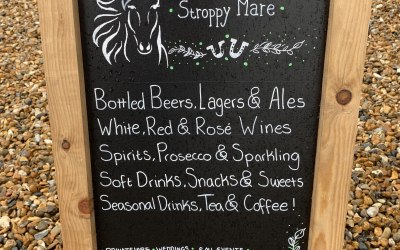 Stroppy Mare
Bottled Beers, Lagers & Ales
White, Red & Rosé Wines
Spirits, Prosecco & Sparkling
Soft Drinks, Snacks & Sweets
Seasonal Drinks, Tea & Coffee!